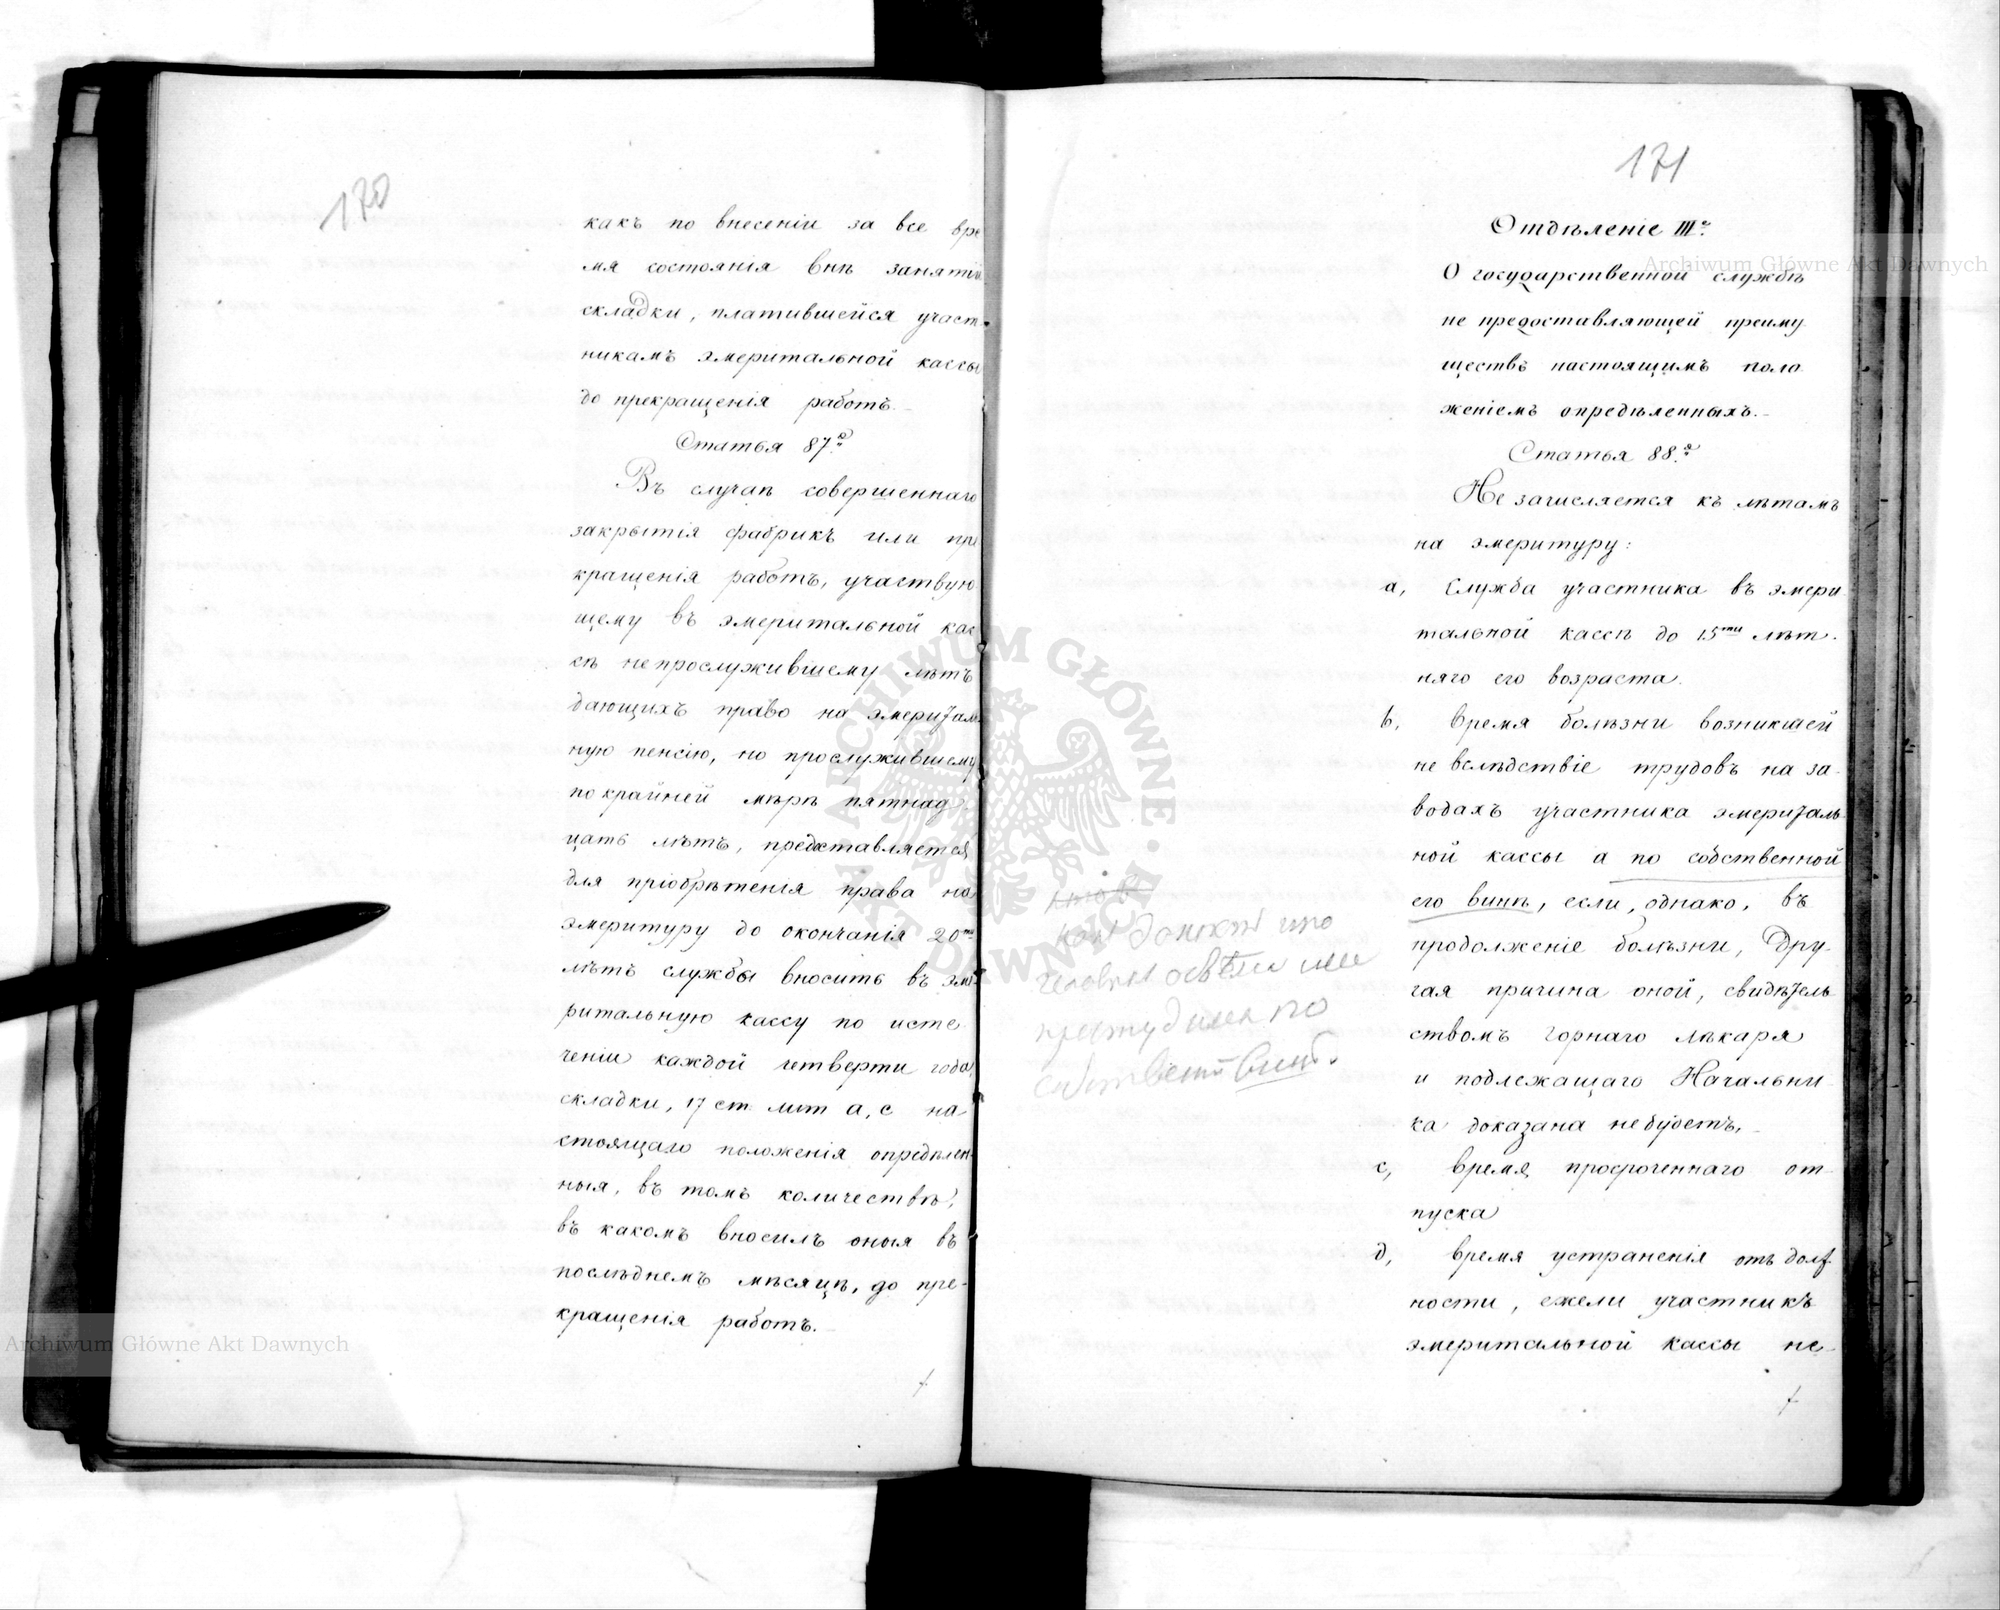 170
какъ по внесеніи за все вре
мя состоянія внѣ занятій
складки, платившейся участ-
никамъ эмеритальной кассы
до прекращенія работъ.
Статья 87.я
Въ случаѣ совершеннаго
закрытія фабрикъ или пре
кращенія работъ, участвую
щему въ эмеритальной кас
сѣ непрослужившему лѣтъ
дающихъ право на эмериталь
ную пенсію, но прослужившему
по крайней мѣрѣ пятнад
цать лѣтъ, предоставляется
для пріобрѣтенія права на
эмеритуру до окончанія 20ти
лѣтъ службы вносить въ эме
ритальную кассу по исте
ченіи каждой четверти года,
складки, 17 ст. лит а, с на
стоящаго положенія опредѣлен
ныя, въ томъ количествѣ,
въ какомъ вносилъ оныя въ
послѣднемъ мѣсяцѣ, до пре-
кращенія работъ.
171
Отдѣленіе III.е
О государственной службѣ
не предоставляющей преиму
ществъ настоящимъ поло
женіемъ опредѣленныхъ.
Статья 88.я
Не зачисляется къ лѣтамъ
на эмеритуру:
а, Служба участника въ эмери
тальной кассѣ до 15ти лѣт-
няго его возраста.
b, время болѣзни возникшей
не вслѣдствіе трудовъ на за-
водахъ участника эмериталь
ной кассы а по собственной
его винѣ, если, однако, въ
продолженіе болѣзни, дру-
гая причина оной, свидѣтель
ствомъ горнаго лѣкаря
и подлежащаго Начальни-
ка доказана небудетъ,
с, время просроченнаго от-
пуска
д, время устраненія отъ долж
ности, ежели участникъ
эмеритальной кассы не-
что
по
винѣ.
Archiwum Główne Akt Dawnych
Archiwum Główne Akt Dawnych
ARCHIWUM GŁÓWNE AKT DAWNYCH